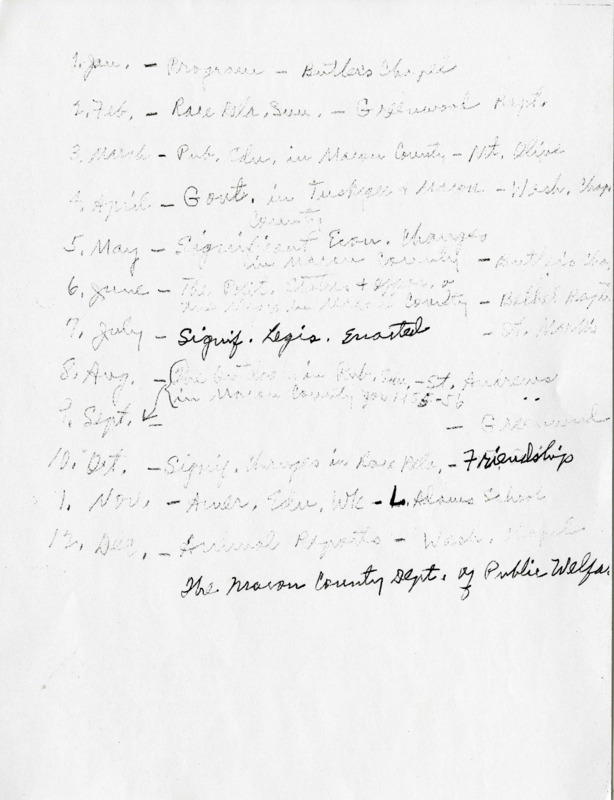 1. Jan. — Program — Butler's Chapel
2. Feb. — Race Rela. Sun. — Greenwood Bapt.
3. March — Pub. Edu. in Macon County — Mt. Olive
4. April — Govt. in Tuskegee & Macon — Wash. Chap
County
5. May — Significant Econ. Changes
in Macon County — Butler's Chap
6. June — The Polit. Status &
the Negro in Macon County — Bethel Bapt
7. July — Signif. Legis. Enacted — St. Martin's
8. Aug. — The Outlook in Pub. Edu. — St. Andrews
in Macon County for 1955-56 "
9. Sept. — Greenwood
10. Oct. — Signif. Changes in Race Rela. — Friendship
1. Nov. — Amer. Edu. Wk — L. Adams School
12. Dec. — Annual Reports — Wash. Chapel
The Macon County Dept. of Public Welfa